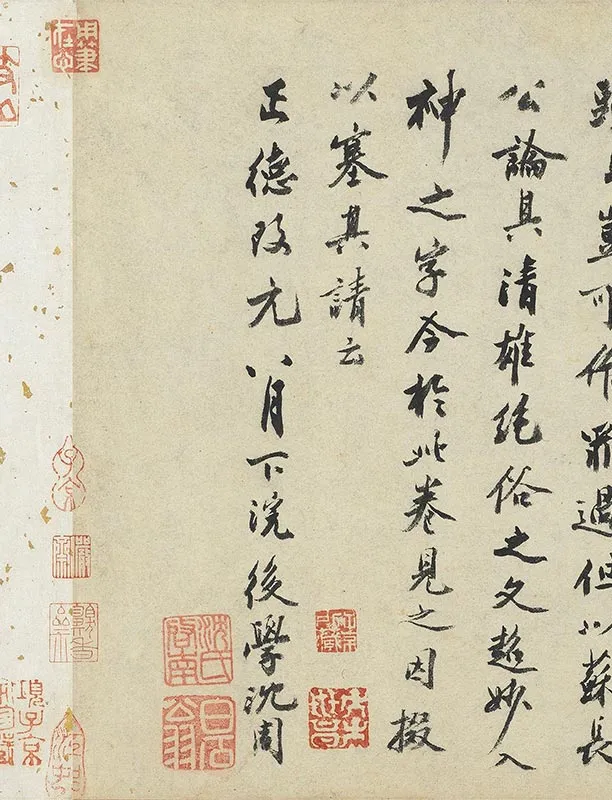 豈可作罪過但以蘇長
公論其清雄絕俗之文超妙入
神之字今於此卷見之因掇
以塞其請云
正德改元八月下浣後學沈周
沈氏啟南
白石翁